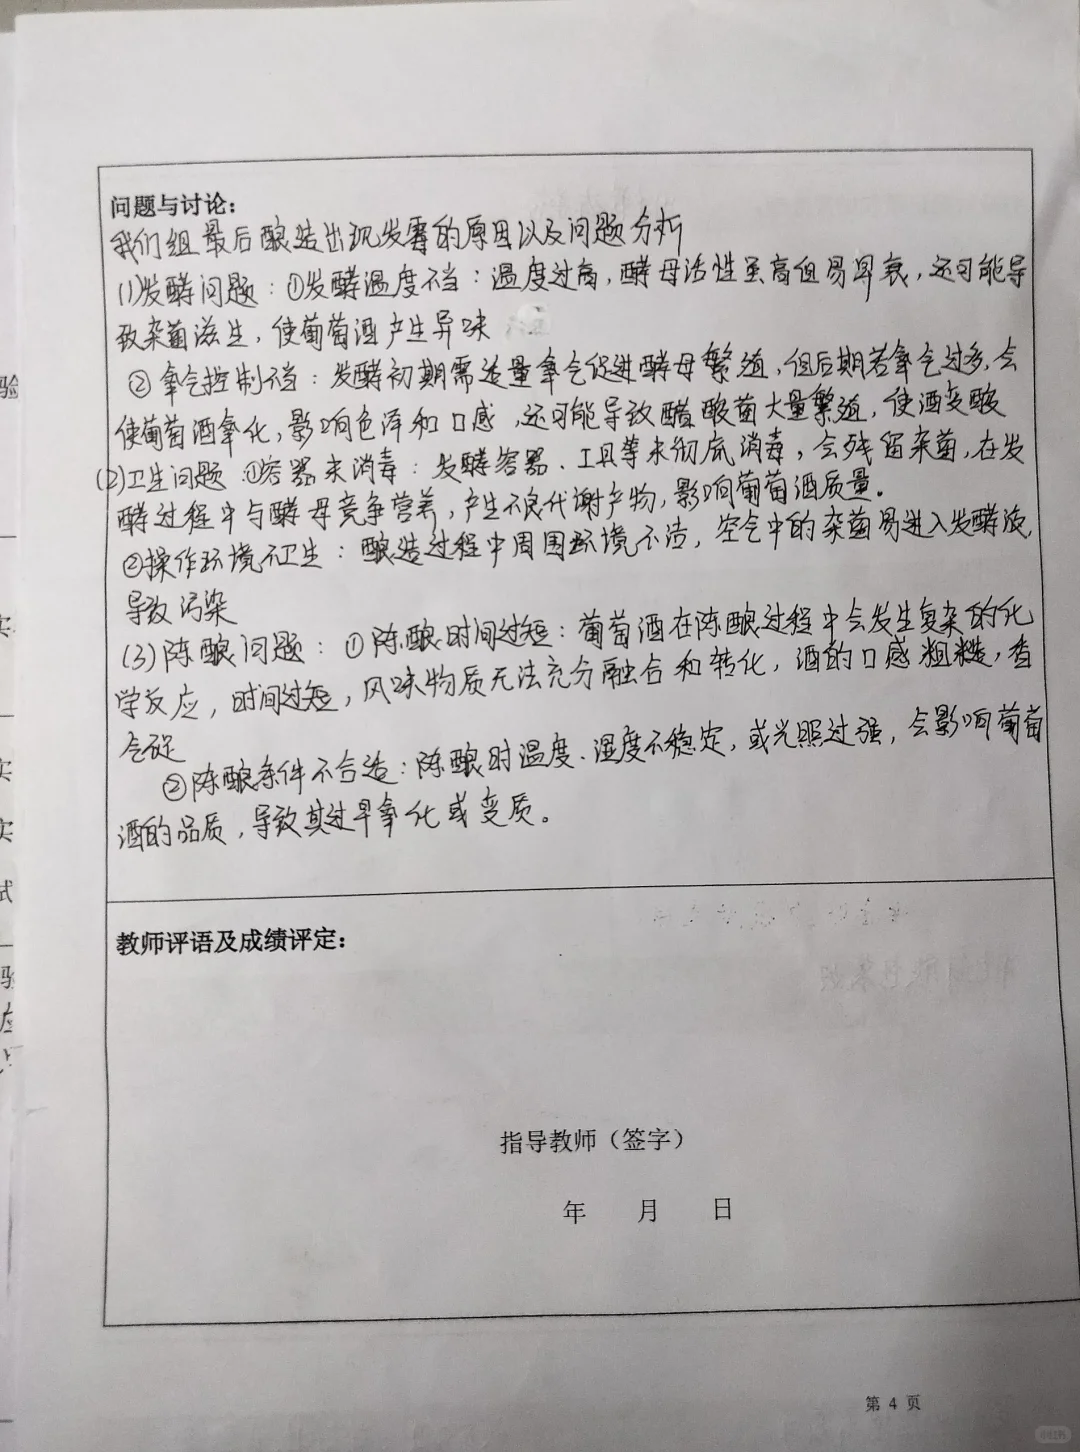 问题与讨论：
我们组最后酿造出现发霉的原因以及问题分析
(1)发酵问题：①发酵温度不当：温度过高，酵母活性虽高但易早衰，还可能导
致杂菌滋生，使葡萄酒产生异味
②氧气控制不当：发酵初期需适量氧气促进酵母繁殖，但后期若氧气过多，会
使葡萄酒氧化，影响色泽和口感，还可能导致醋酸菌大量繁殖，使酒变酸
(2)卫生问题①容器未消毒：发酵容器、工具等未彻底消毒，会残留杂菌，在发
酵过程中与酵母竞争营养，产生不良代谢产物，影响葡萄酒质量。
②操作环境不卫生：酿造过程中周围环境不洁，空气中的杂菌易进入发酵液，
导致污染
(3)陈酿问题：①陈酿时间过短：葡萄酒在陈酿过程中会发生复杂的化
学反应，时间过短，风味物质无法充分融合和转化，酒的口感粗糙，香
气
②陈酿条件不合适：陈酿时温度、湿度不稳定，或光照过强，会影响葡萄
酒的品质，导致其过早氧化或变质。
教师评语及成绩评定：
指导教师（签字）
年 月 日
第 4 页
验
实
实
实
试
验